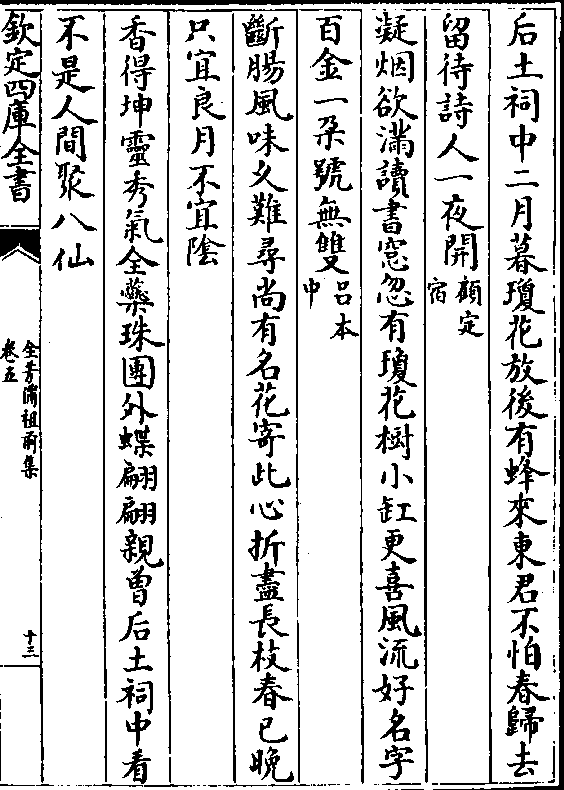 后土祠中二月暮瓊花放後有蜂來東君不怕春歸去
留待詩人一夜開顧定
宿
凝烟欲滿讀書窓忽有瓊花樹小缸更喜風流好名字
百金一朶號無雙呂本
中
斷腸風味久難尋尚有名花寄此心折盡長枝春已晚
只宜良月不宜陰
香得坤靈秀氣全蘂珠團外蝶翩翩親曽后土祠中看
不是人間聚八仙
欽定四庫全書
全芳備祖前集
卷五
十三